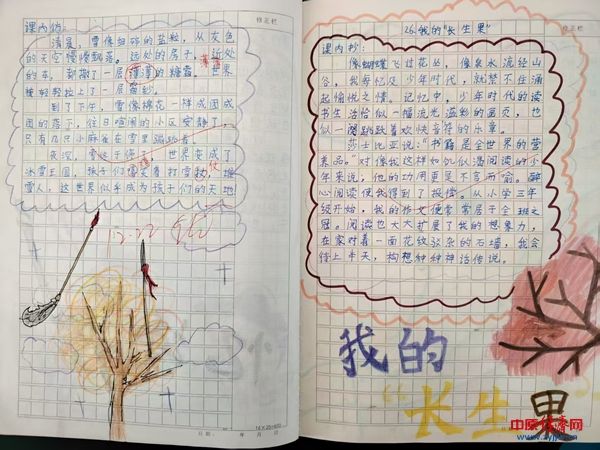 课内仿:
清晨，雪像细碎的盐粒，从灰色
的天空慢慢飘落。远处的房子，近处
的车，都撒了一层薄薄的糖霜。世界
被轻轻拉上了一层窗纱。
到了下午，雪像棉花一样成团成
团的落下，往日喧闹的小区安静了，
只有几只小麻雀在雪里蹦跳着。
夜深，雪
世界变成了
冰雪王国，孩子们
着打雪仗，堆
雪人，这世界似乎成为孩子们的天地
12.22
修正栏
26.我的“长生果”
课内抄:
像蝴蝶飞过花丛，像泉水流经山
谷，我每忆及少年时代，就禁不住涌
起愉悦之情。记忆中，少年时代的读
书生活恰似一幅流光溢彩的画页，也
似一阕跳跃着欢快音符的乐章。
莎士比亚说：“书籍是全世界的营
养品。”对像我这样如饥似渴阅读的少
年来说，他的功用更是不言而喻。醉
心阅读使我得到了报偿。从小学三年
级开始，我的作文便常常居于全班之
冠。阅读也大大扩展了我的想象力，
在家对着一面花纹驳杂的石墙，我会
待上半天，构想种种神话传说。
修正栏
我的
“长生果
日期： 年 月 日
中原经济网
www.zyjjw.cn